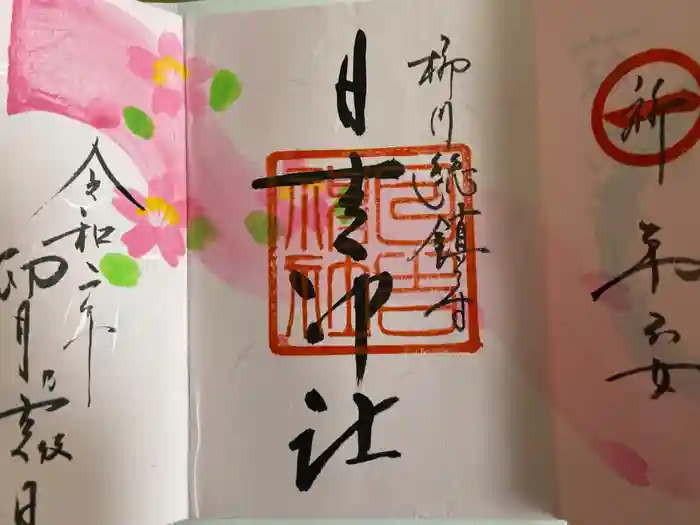 祈
柳川総鎮守
日吉神社
日吉
神社
令和二年
卯月乃
日